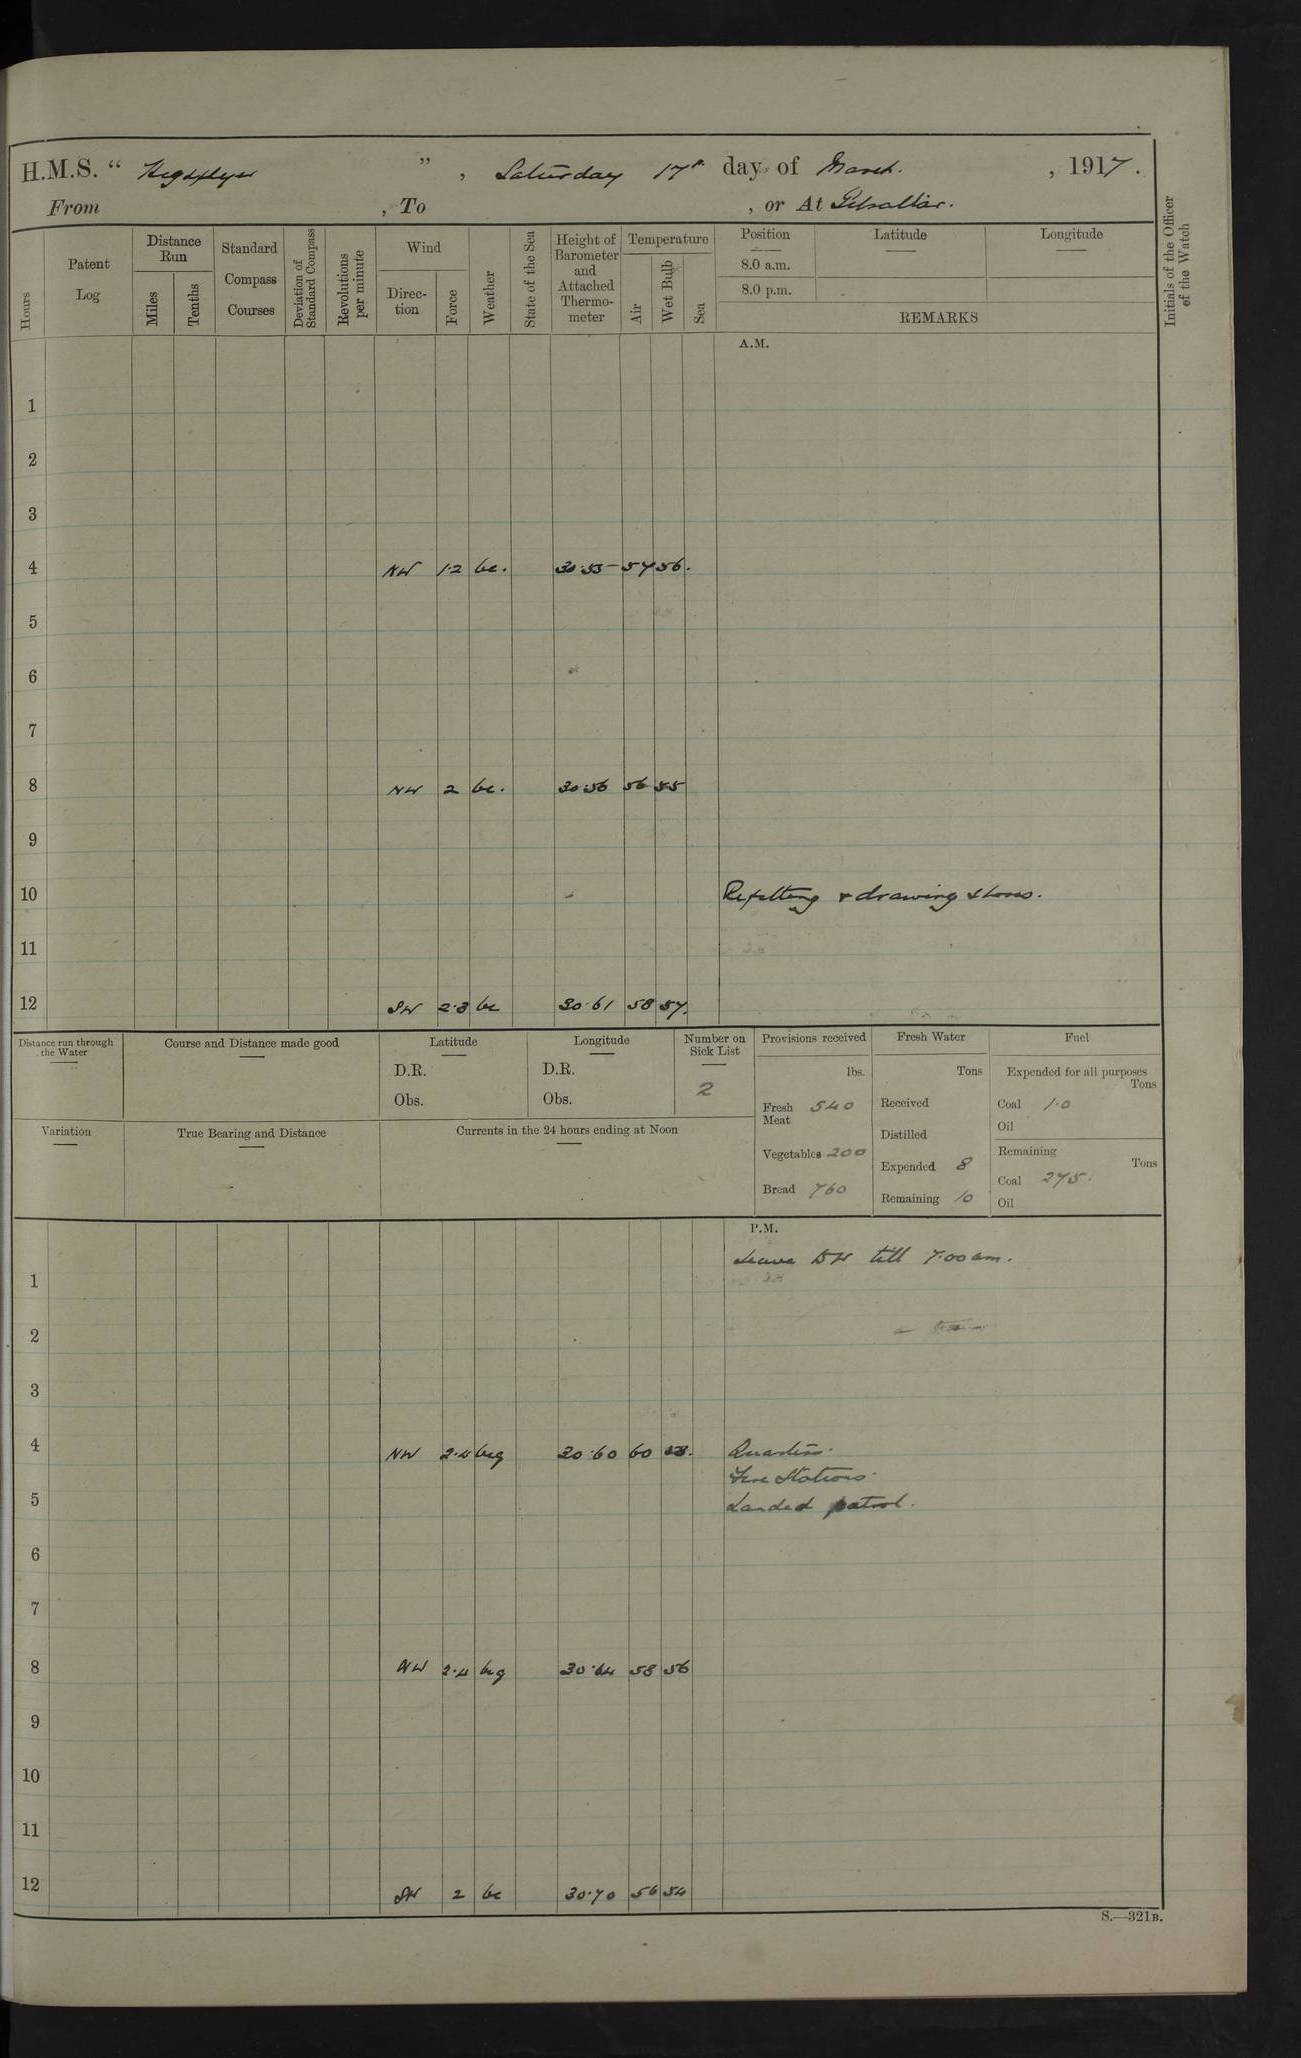 H.M.S. “ Highflyer ” , Saturday 17th day of March. , 1917.
From , To , or At Gibraltar.
Hours
Patent Log
Distance Run
Miles
Tenths
Standard Compass Courses
Deviation of Standard Compass
Revolutions per minute
Wind
Direction
Force
Weather
State of the Sea
Height of Barometer and Attached Thermometer
Temperature
Air
Wet Bulb
Sea
Position
8.0 a.m.
8.0 p.m.
Latitude
Longitude
REMARKS
Initials of the Officer of the Watch
A.M.
1
2
3
4 NW 1·2 bc. 30·55 57 56.
5
6
7
8 NW 2 bc. 30·56 56 55
9
10 Refitting & drawing stores.
11
12 SW 2·3 bc 30·61 58 57.
Distance run through the Water
Course and Distance made good
Latitude
D.R.
Obs.
Longitude
D.R.
Obs.
Number on Sick List
2
Provisions received
lbs.
Fresh Meat 540
Vegetables 200
Bread 760
Fresh Water
Tons
Received
Distilled
Expended 8
Remaining 10
Fuel
Expended for all purposes
Tons
Coal 10
Oil
Remaining
Tons
Coal 275.
Oil
Variation
True Bearing and Distance
Currents in the 24 hours ending at Noon
P.M.
Leave till 7.00 am.
1
2
3
4 NW 2·4 bcg 30·60 60 58. Quarters.
Fire Stations.
5 Landed patrol.
6
7
8 NW 2·4 bcg 30·64 58 56
9
10
11
12 SW 2 bc 30·70 56 54
S.—321B.